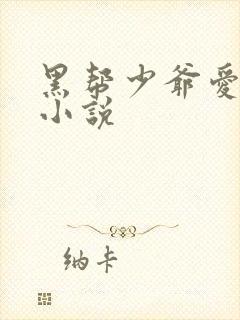 黑帮少爷爱
小說
纳卡